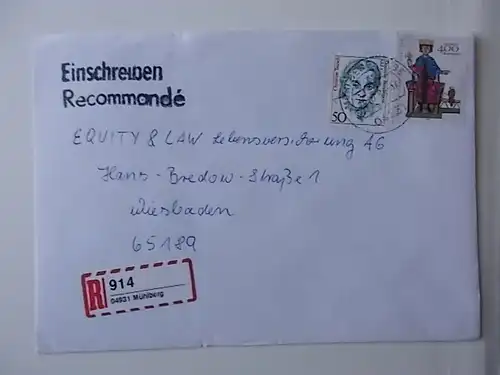 Einschreiben
Recommandé
50
400
EQUITY & LAW Lebensversicherung AG
Hans-Bredow-Straße 1
Wiesbaden
65189
R
914
04931 Mühlberg